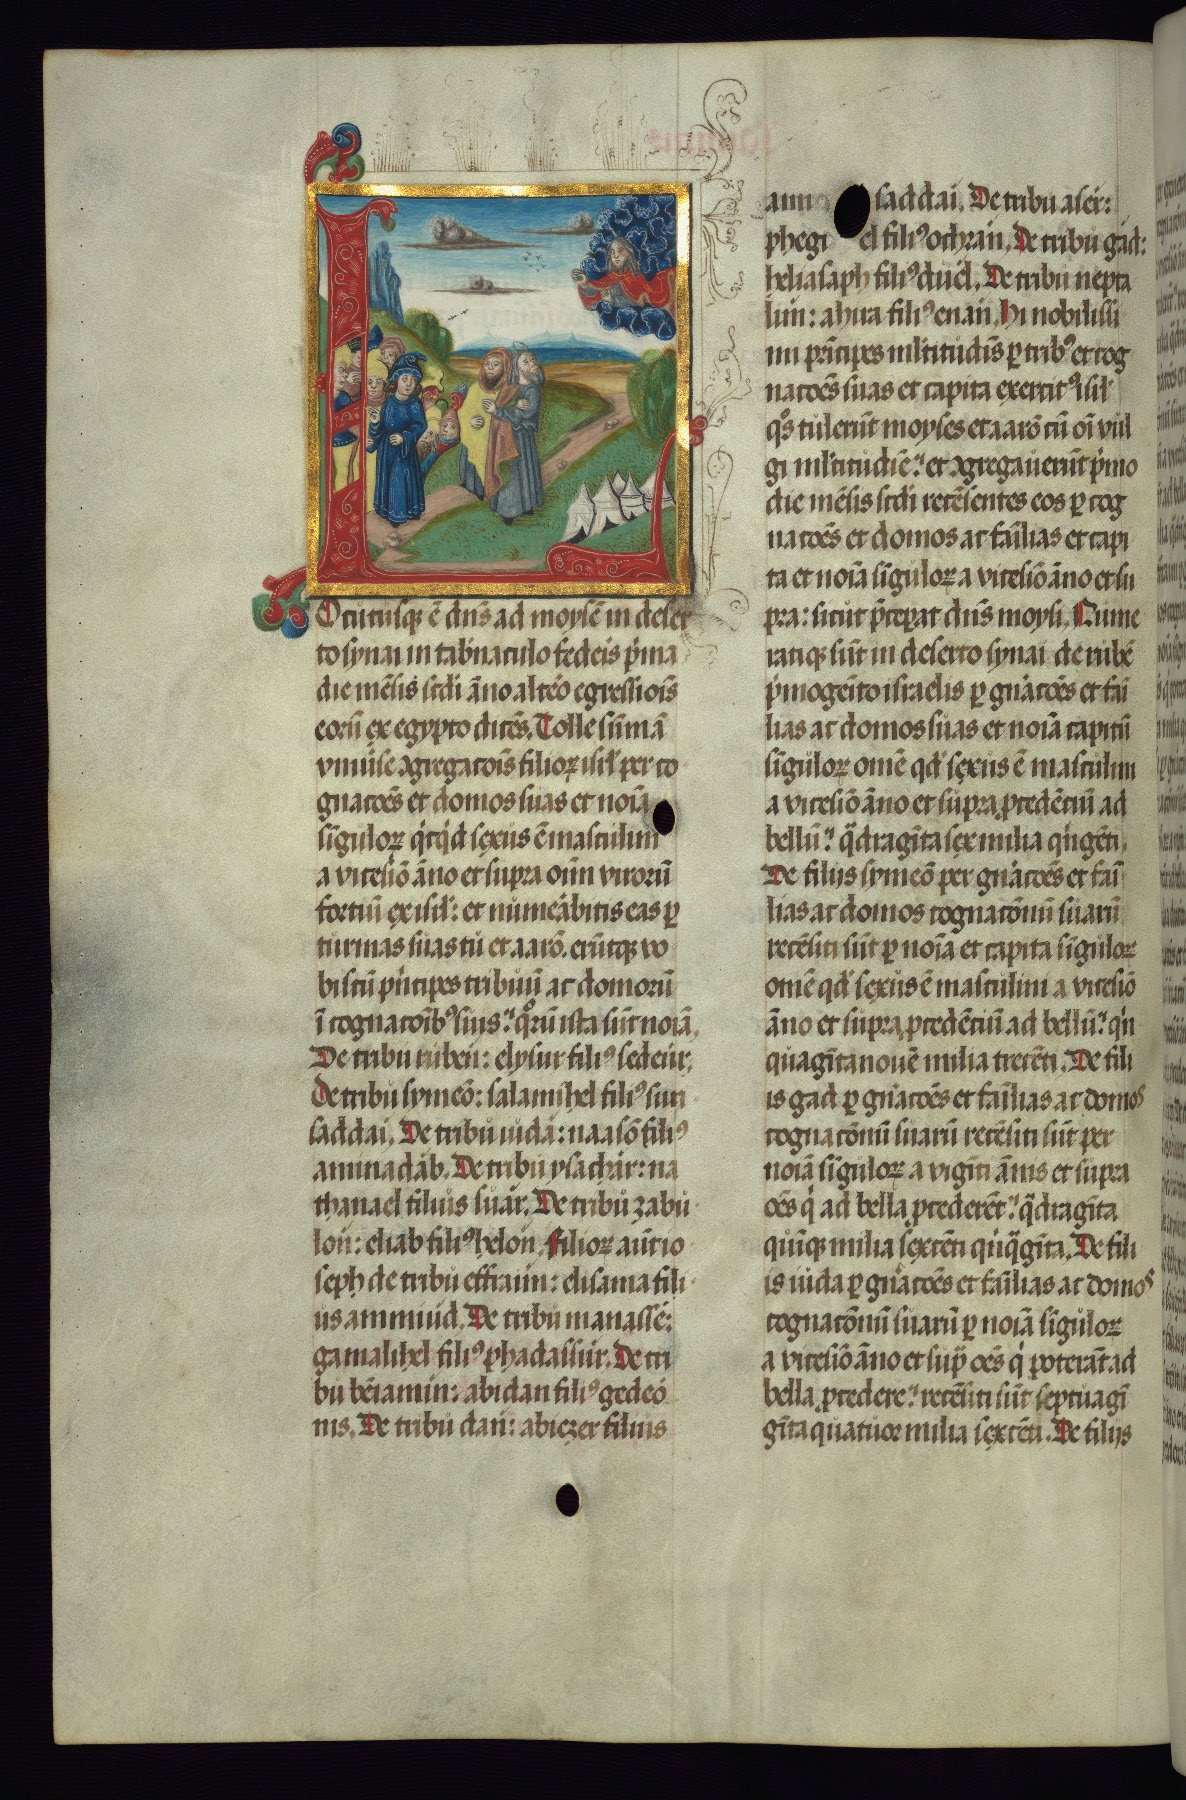 L
Ocutusq̃ ē dñs ad moysē in deser
to synai in tab̃naculo federis p̃ima
die mēsis scd̃i ãno altẽo egressiõis
eorū ex egypto dicēs. Tolle sūmā
vniũse ꝯgregacõis filioꝝ isrl̃ per co
gnacõēs et domos suas et noĩa
singuloꝝ q̃cq̃d sexus ē masculini
a vicesiõ ãno et supra oim̃ viroꝝ
fortiū ex isrl̃: et num̃eabitis eas ꝑ
turmas suas tu et aarō. erūtq̃ vo
biscū p̃ncipes tribuū ac domorū
ĩ cognacõibꝰ suis: quoꝝ ista sūt noĩa.
De tribu ruben: elysur filiꝰ sedeur.
De tribu symeō: salamihel filiꝰ suri
saddai. De tribu iuda: naasō filiꝰ
aminadab. De tribu ysachar: na
thanael filius suar. De tribu zabu
lon: eliab filiꝰ helon. Filioꝝ aūt io
seph de tribu effraim: elisama fili
us ammiud. De tribu manasse:
gamalihel filiꝰ phadassur. De tri
bu beniamin: abidan filiꝰ gedeo
nis. De tribu dan: abiezer filius
ami saddai. De tribu aser:
phegi el filiꝰ ochran. De tribu gad:
heliasaph filiꝰ duel. De tribu nepta
lim: ahira filiꝰ enan. Hi nobilissi
mi p̃ncipes ml̃titudĩs ꝑ tribꝰ et cog
nacõēs suas et capita exercitꝰ isrl̃
q̊s tulerūt moyses et aarō cū oĩ vul
gi ml̃titudiē: et ꝯgregauerūt p̃mo
die mēsis scd̃i recēsentes eos ꝑ cog
nacõēs et domos ac familias et capi
ta et noĩa singuloꝝ a vicesiõ ãno et su
pra: sicut p̃ceperat dñs moysi. Nume
ratiq̃ sūt in deserto synai de rubē
p̃mogenito israelis ꝑ gñacõēs et fami
lias ac domos suas et noĩa capitū
singuloꝝ omē qd̃ sexus ē masculini
a vicesiõ ãno et supra ꝓcedēciū ad
bellū: q̃draginta sex milia q̃ngēti.
De filijs symeō per gñacõēs et fami
lias ac domos cognacõnū suarū
recēsiti sūt ꝑ noĩa et capita singuloꝝ
omē qd̃ sexus ē masculini a vicesiõ
ãno et supra ꝓcedēciū ad bellū: q̃n
quaginta nouē milia trecēti. De fili
is gad ꝑ gñacõēs et familias ac domos
cognacõnū suarū recēsiti sūt per
noĩa singuloꝝ a viginti ãnis et supra
oēs q̃ ad bella ꝓcederēt: q̃draginta
quinq̃ milia sexcēti q̃nq̃ginta. De fili
is iuda ꝑ gñacõēs et familias ac domos
cognacõnū suarū ꝑ noĩa singuloꝝ
a vicesiõ ãno et sup̃ oēs q̃ poterāt ad
bella ꝓcedere: recēsiti sūt septuagi
ginta quatuor milia sexcēti. De filijs